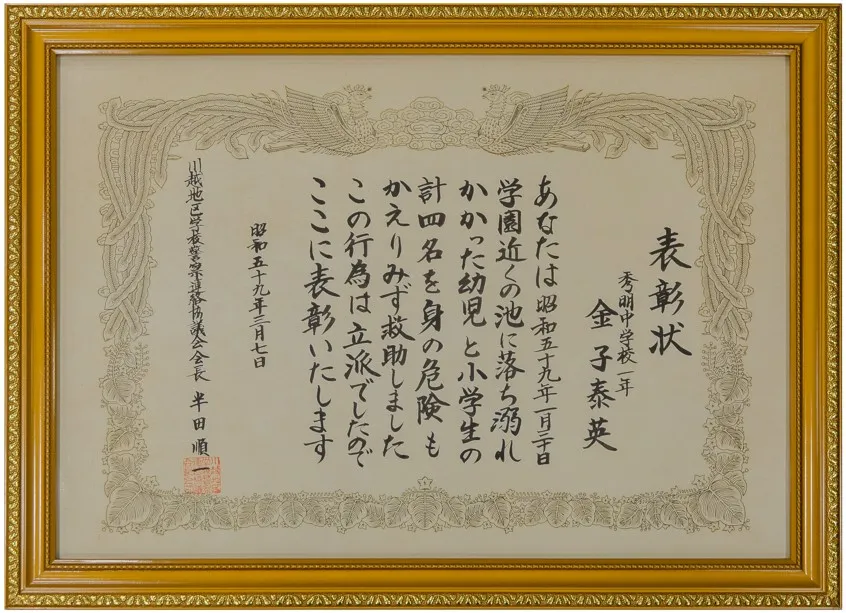 表彰状
秀明中学校一年
金子泰英
あなたは昭和五十九年一月二十日
学園近くの池に落ち溺れ
かかった幼児と小学生の
計四名を身の危険も
かえりみず救助しました
この行為は立派でしたので
ここに表彰いたします
昭和五十九年三月七日
川越地区学校警察連絡協議会会長 半田順一